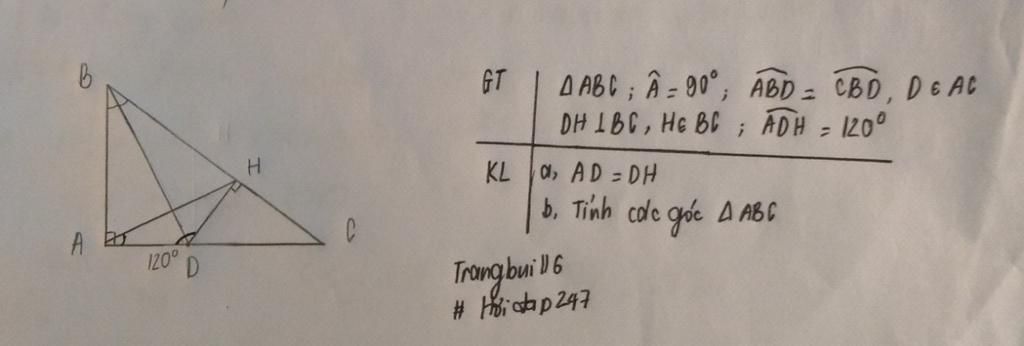 B
H
A
D
C
120°
GT
ΔABC ; Â = 90° ; ABD = CBD, D ∈ AC
DH ⊥ BC, H ∈ BC ; ADH = 120°
KL
a, AD = DH
b, Tính các góc Δ ABC
Trangbui116
# Hỏi D247